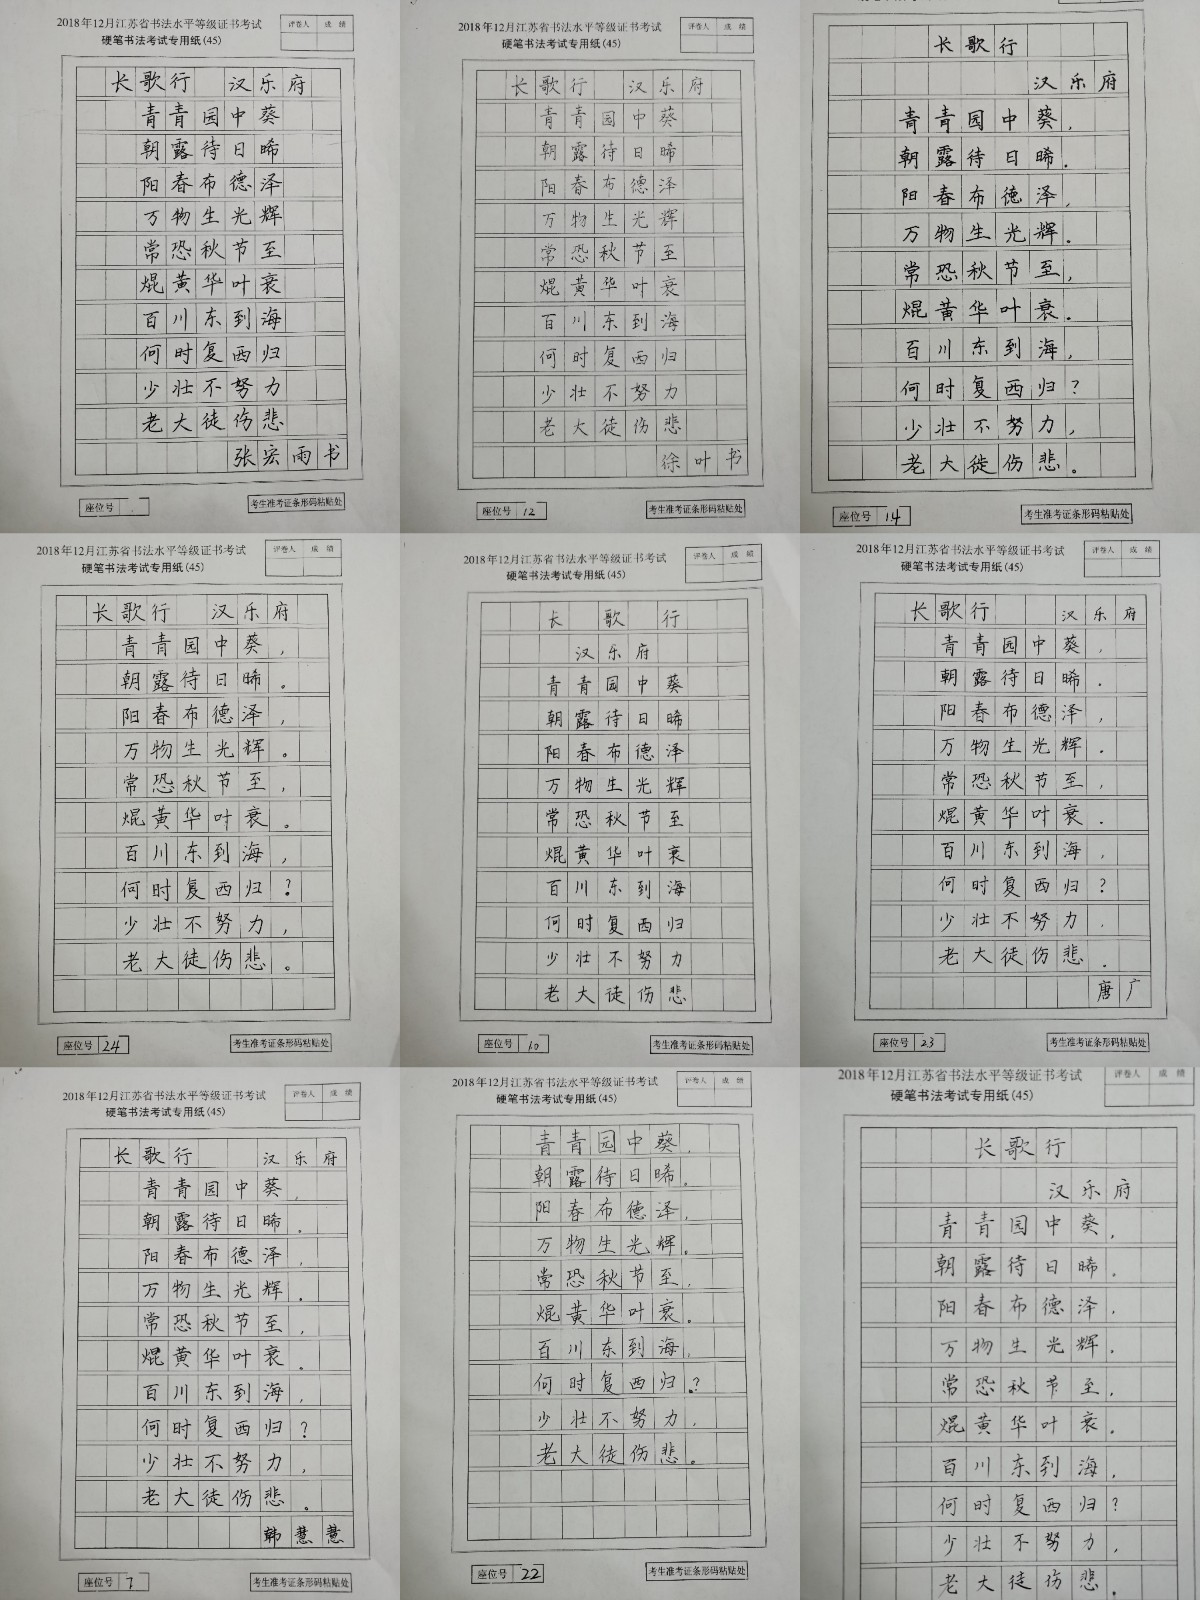 2018年12月江苏省书法水平等级证书考试
硬笔书法考试专用纸(45)
评卷人 成绩
长歌行 汉乐府
青青园中葵
朝露待日晞
阳春布德泽
万物生光辉
常恐秋节至
焜黄华叶衰
百川东到海
何时复西归
少壮不努力
老大徒伤悲
张宏雨书
座位号
考生准考证条形码粘贴处
2018年12月江苏省书法水平等级证书考试
硬笔书法考试专用纸(45)
评卷人 成绩
长歌行 汉乐府
青青园中葵
朝露待日晞
阳春布德泽
万物生光辉
常恐秋节至
焜黄华叶衰
百川东到海
何时复西归
少壮不努力
老大徒伤悲
徐叶书
座位号 12
考生准考证条形码粘贴处
长歌行
汉乐府
青青园中葵,
朝露待日晞.
阳春布德泽,
万物生光辉.
常恐秋节至,
焜黄华叶衰.
百川东到海,
何时复西归?
少壮不努力,
老大徒伤悲。
座位号 14
考生准考证条形码粘贴处
2018年12月江苏省书法水平等级证书考试
硬笔书法考试专用纸(45)
评卷人 成绩
长歌行 汉乐府
青青园中葵,
朝露待日晞。
阳春布德泽,
万物生光辉。
常恐秋节至,
焜黄华叶衰。
百川东到海,
何时复西归?
少壮不努力,
老大徒伤悲。
座位号 24
考生准考证条形码粘贴处
2018年12月江苏省书法水平等级证书考试
硬笔书法考试专用纸(45)
评卷人 成绩
长歌行
汉乐府
青青园中葵
朝露待日晞
阳春布德泽
万物生光辉
常恐秋节至
焜黄华叶衰
百川东到海
何时复西归
少壮不努力
老大徒伤悲
座位号 10
考生准考证条形码粘贴处
2018年12月江苏省书法水平等级证书考试
硬笔书法考试专用纸(45)
评卷人 成绩
长歌行 汉乐府
青青园中葵,
朝露待日晞.
阳春布德泽,
万物生光辉.
常恐秋节至,
焜黄华叶衰.
百川东到海,
何时复西归?
少壮不努力,
老大徒伤悲.
唐广
座位号 23
考生准考证条形码粘贴处
2018年12月江苏省书法水平等级证书考试
硬笔书法考试专用纸(45)
评卷人 成绩
长歌行 汉乐府
青青园中葵,
朝露待日晞.
阳春布德泽,
万物生光辉.
常恐秋节至,
焜黄华叶衰.
百川东到海,
何时复西归?
少壮不努力,
老大徒伤悲。
韩慧慧
座位号 7
考生准考证条形码粘贴处
2018年12月江苏省书法水平等级证书考试
硬笔书法考试专用纸(45)
评卷人 成绩
青青园中葵,
朝露待日晞。
阳春布德泽,
万物生光辉。
常恐秋节至,
焜黄华叶衰。
百川东到海,
何时复西归?
少壮不努力,
老大徒伤悲。
座位号 22
考生准考证条形码粘贴处
2018年12月江苏省书法水平等级证书考试
硬笔书法考试专用纸(45)
评卷人 成绩
长歌行
汉乐府
青青园中葵,
朝露待日晞.
阳春布德泽,
万物生光辉.
常恐秋节至,
焜黄华叶衰.
百川东到海,
何时复西归?
少壮不努力,
老大徒伤悲.